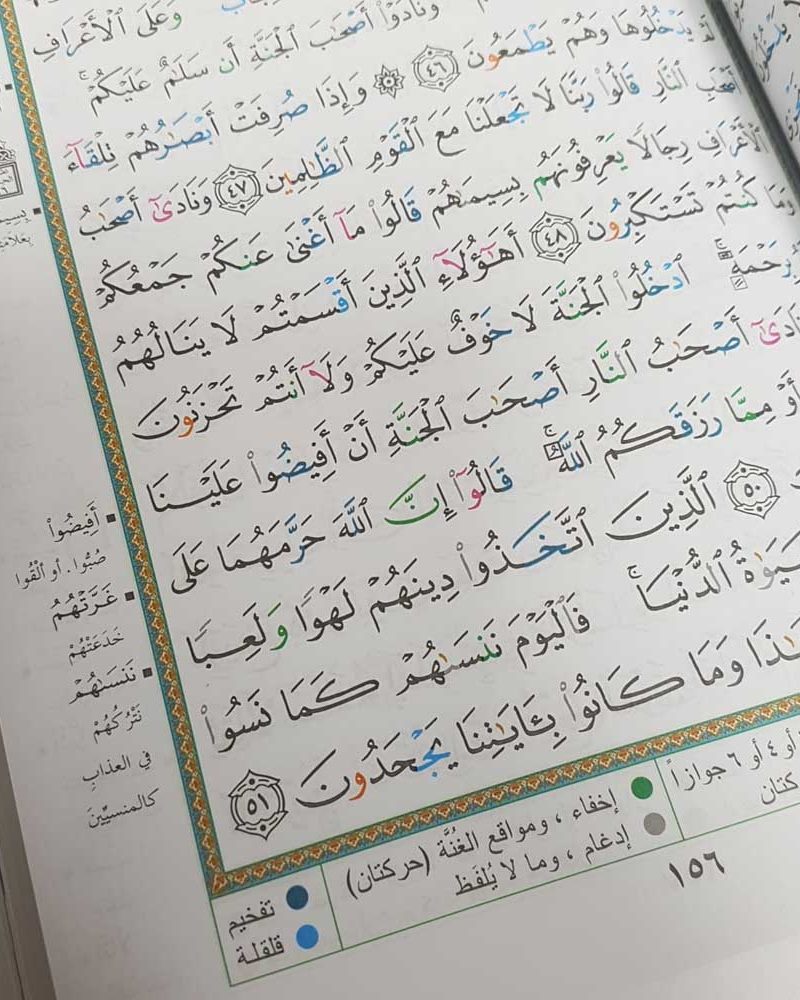 وَعَلَى ٱلْأَعْرَافِ
وَنَادَوْا۟ أَصْحَٰبَ ٱلْجَنَّةِ أَن سَلَٰمٌ عَلَيْكُمْ ۚ
يَدْخُلُوهَا وَهُمْ يَطْمَعُونَ ٤٦ ۞ وَإِذَا صُرِفَتْ أَبْصَٰرُهُمْ تِلْقَآءَ
أَصْحَٰبِ ٱلنَّارِ قَالُوا۟ رَبَّنَا لَا تَجْعَلْنَا مَعَ ٱلْقَوْمِ ٱلظَّٰلِمِينَ ٤٧ وَنَادَىٰٓ أَصْحَٰبُ
ٱلْأَعْرَافِ رِجَالًا يَعْرِفُونَهُم بِسِيمَىٰهُمْ قَالُوا۟ مَآ أَغْنَىٰ عَنكُمْ جَمْعُكُمْ
وَمَا كُنتُمْ تَسْتَكْبِرُونَ ٤٨ أَهَٰٓؤُلَآءِ ٱلَّذِينَ أَقْسَمْتُمْ لَا يَنَالُهُمُ
بِرَحْمَةٍ ۚ ٱدْخُلُوا۟ ٱلْجَنَّةَ لَا خَوْفٌ عَلَيْكُمْ وَلَآ أَنتُمْ تَحْزَنُونَ
أَصْحَٰبُ ٱلنَّارِ أَصْحَٰبَ ٱلْجَنَّةِ أَنْ أَفِيضُوا۟ عَلَيْنَا
أَوْ مِمَّا رَزَقَكُمُ ٱللَّهُ ۚ قَالُوٓا۟ إِنَّ ٱللَّهَ حَرَّمَهُمَا عَلَى
٥٠ ٱلَّذِينَ ٱتَّخَذُوا۟ دِينَهُمْ لَهْوًا وَلَعِبًا
ٱلدُّنْيَا ۚ فَٱلْيَوْمَ نَنسَىٰهُمْ كَمَا نَسُوا۟
وَمَا كَانُوا۟ بِـَٔايَٰتِنَا يَجْحَدُونَ ٥١
أَفِيضُوا۟
صُبُّوا. أو أَلْقُوا
غَرَّتْهُمْ
خَدَعَتْهُمْ
نَنسَىٰهُمْ
نَتْرُكُهُمْ
في العذابِ
كالمنسيِّينَ
أو ٤ أو ٦ جوازاً
إخفاء ، ومواقع الغُنَّة (حركتان)
إدغام ، وما لا يُلفَظ
تفخيم
قلقلة
١٥٦